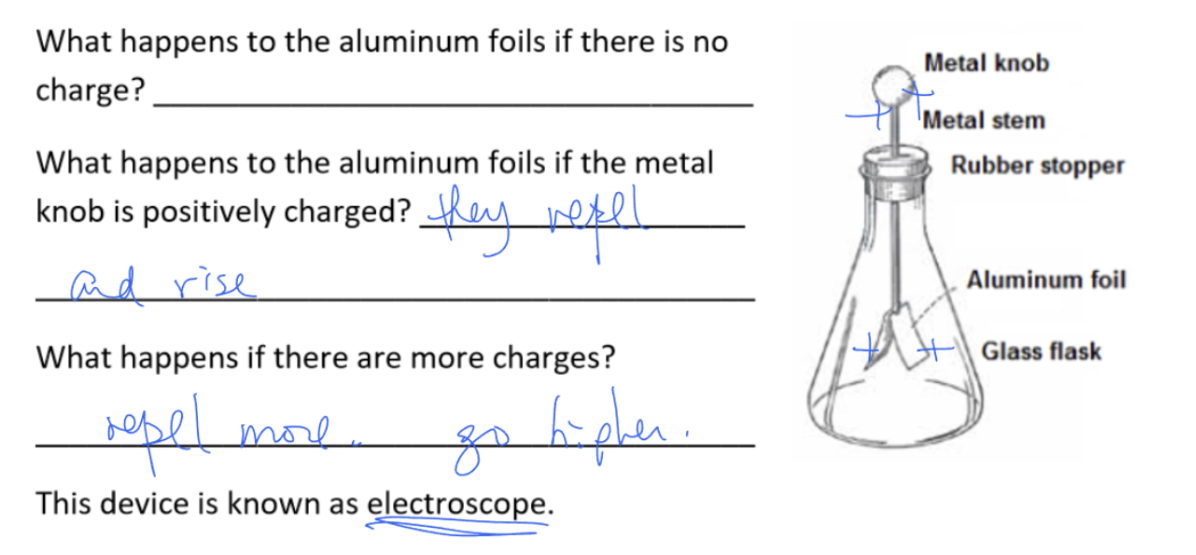 What happens to the aluminum foils if there is no
charge?
What happens to the aluminum foils if the metal
knob is positively charged? they repel
and rise
What happens if there are more charges?
repel more. go higher.
This device is known as electroscope.
Metal knob
+ +
Metal stem
Rubber stopper
Aluminum foil
+ +
Glass flask